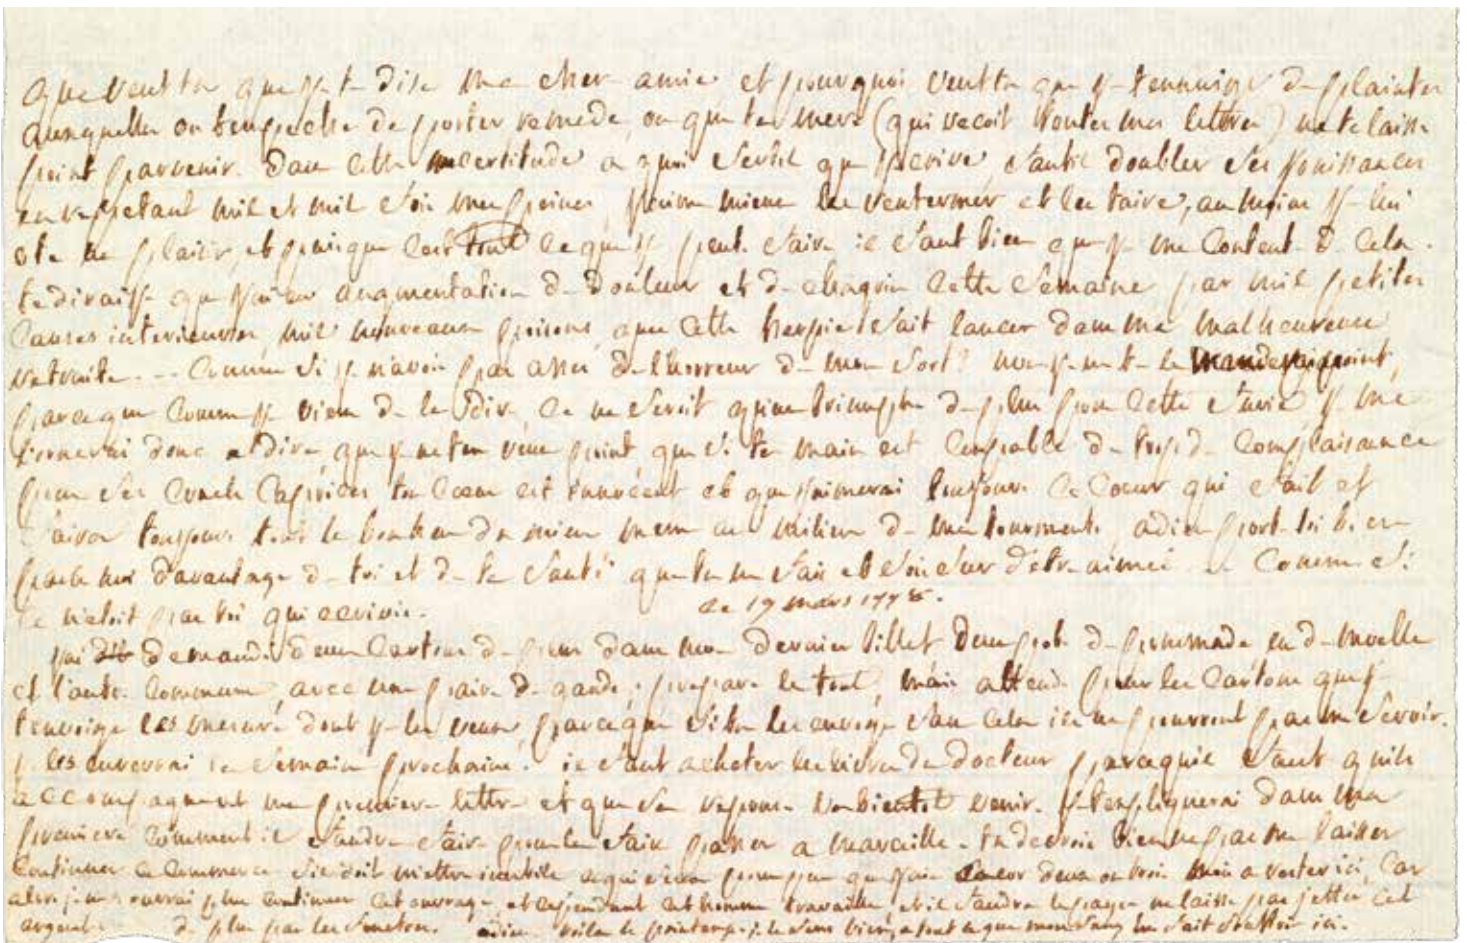 que veut tu que je te dise ma cher amie et pourquoi veut tu que je tennuiye de plaintes
auxquelles on tempeche de porter remede, ou que ta mere (qui recoit toutes mes lettres) ne te laisse
point parvenir. dans cette incertitude a quoi sert il que jecrive, faut il doubler ses jouissances
en repetant mil et mil fois mes peines, jaime mieux les renfermer et les taire, au moins je lui
ote ce plaisir, et puisque cest tout ce que je peut faire il faut bien que je me contente de cela.
te dirai je que jai eu augmentation de douleur et de chagrin cette semaine par mil petites
causes interieures, mil nouveaux poisons que cette harpie fait lancer dans ma malheureuse
retraite... comme si je navois pas assez de l'horreur de mon sort? non je ne te le manderai point,
parceque comme je viens de le dire, ce ne seroit quun triomphe de plus pour cette furie, je me
bornerai donc a te dire que je ne ten veux point, que si ta main est coupable de trop de complaisance
pour ses cruels caprices ton coeur est innocent et que jaimerai toujours ce coeur qui fait et
faira toujours tout le bonheur du mien meme au milieu de mes tourments, adieu porte toi bien
parle moi davantage de toi et de ta santé que tu ne fais et sois sur d'etre aimée comme si
ce netoit pas toi qui ecrivis.
ce 19 mars 1778.
jai demandé deux cartons de plus dans mon dernier billet deux pots de pommade, un de moelle
et l'autre commune, avec une paire de gands; prepare le tout, mais attend pour les cartons que je
tenvoiye les mesures dont je les veux, parceque si tu les envoye sans cela ils ne pourront pas me servir.
je les enverrai la semaine prochaine. il faut acheter les livres du docteur parcequil faut quils
accompagnent ma premiere lettre et que sa reponse va bientot venir. je texpliquerai dans ma
premiere comment il faudra faire pour les faire passer a marseille. tu devrois bien ne pas me laisser
continuer ce commerce sil doit metre inutile a qui vivra pour peu que jaie encore deux ou trois mois a rester ici, car
alors je ne pourrai plus continuer cet ouvrage, et cependant cet homme travaille, et il faudra le payer ne laisse pas jetter cet
argent de plus par les fenetres. adieu. voila le printemps je le sens bien, a tout ce que mon sang me fait souffrir ici.